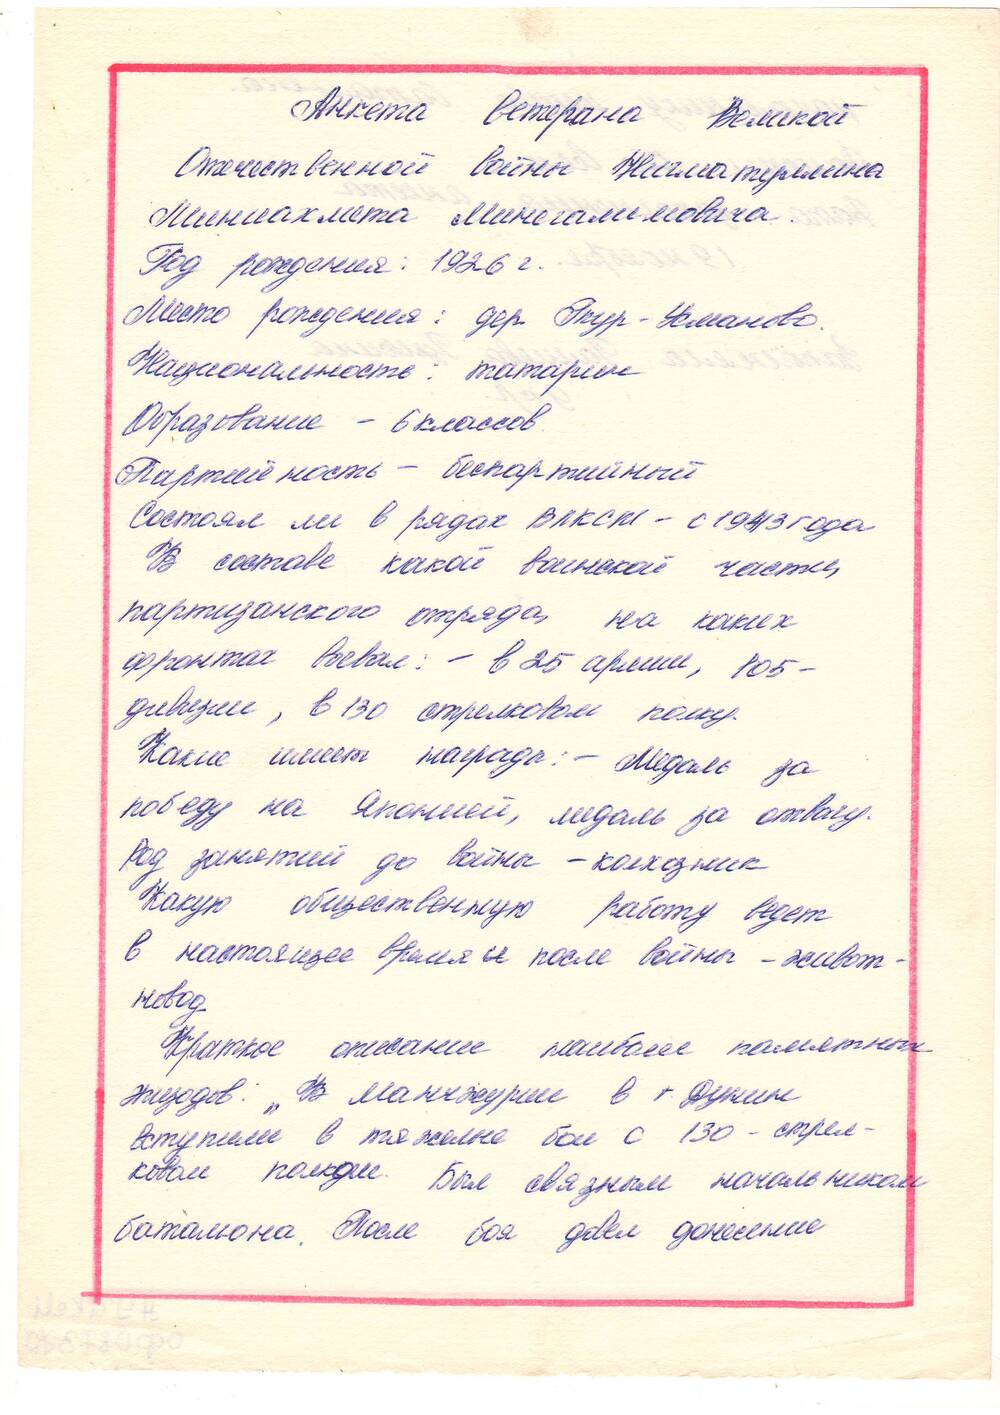 Анкета ветерана Великой
Отечественной войны Нигматуллина
Миниахмета Минегалимовича.
Год рождения: 1926 г.
Место рождения: дер. Тюр-Усманово.
Национальность: татарин
Образование – 6 классов.
Партийность – беспартийный
Состоял ли в рядах ВЛКСМ – с 1943 года
В составе какой воинской части,
партизанского отряда, на каких
фронтах воевал: – в 25 армии, 105-
дивизии, в 130 стрелковом полку.
Какие имеет награды: – Медаль за
победу на Японией, медаль за отвагу.
Род занятий до войны – колхозник
Какую общественную работу ведет
в настоящее время и после войны – живот-
новод
Краткое описание наиболее памятных
эпизодов: „В Манчжурии в г
вступили в тяжелые бои с 130-стрел-
ковом полком. Был связным начальником
баталиона. После боя довел донесение